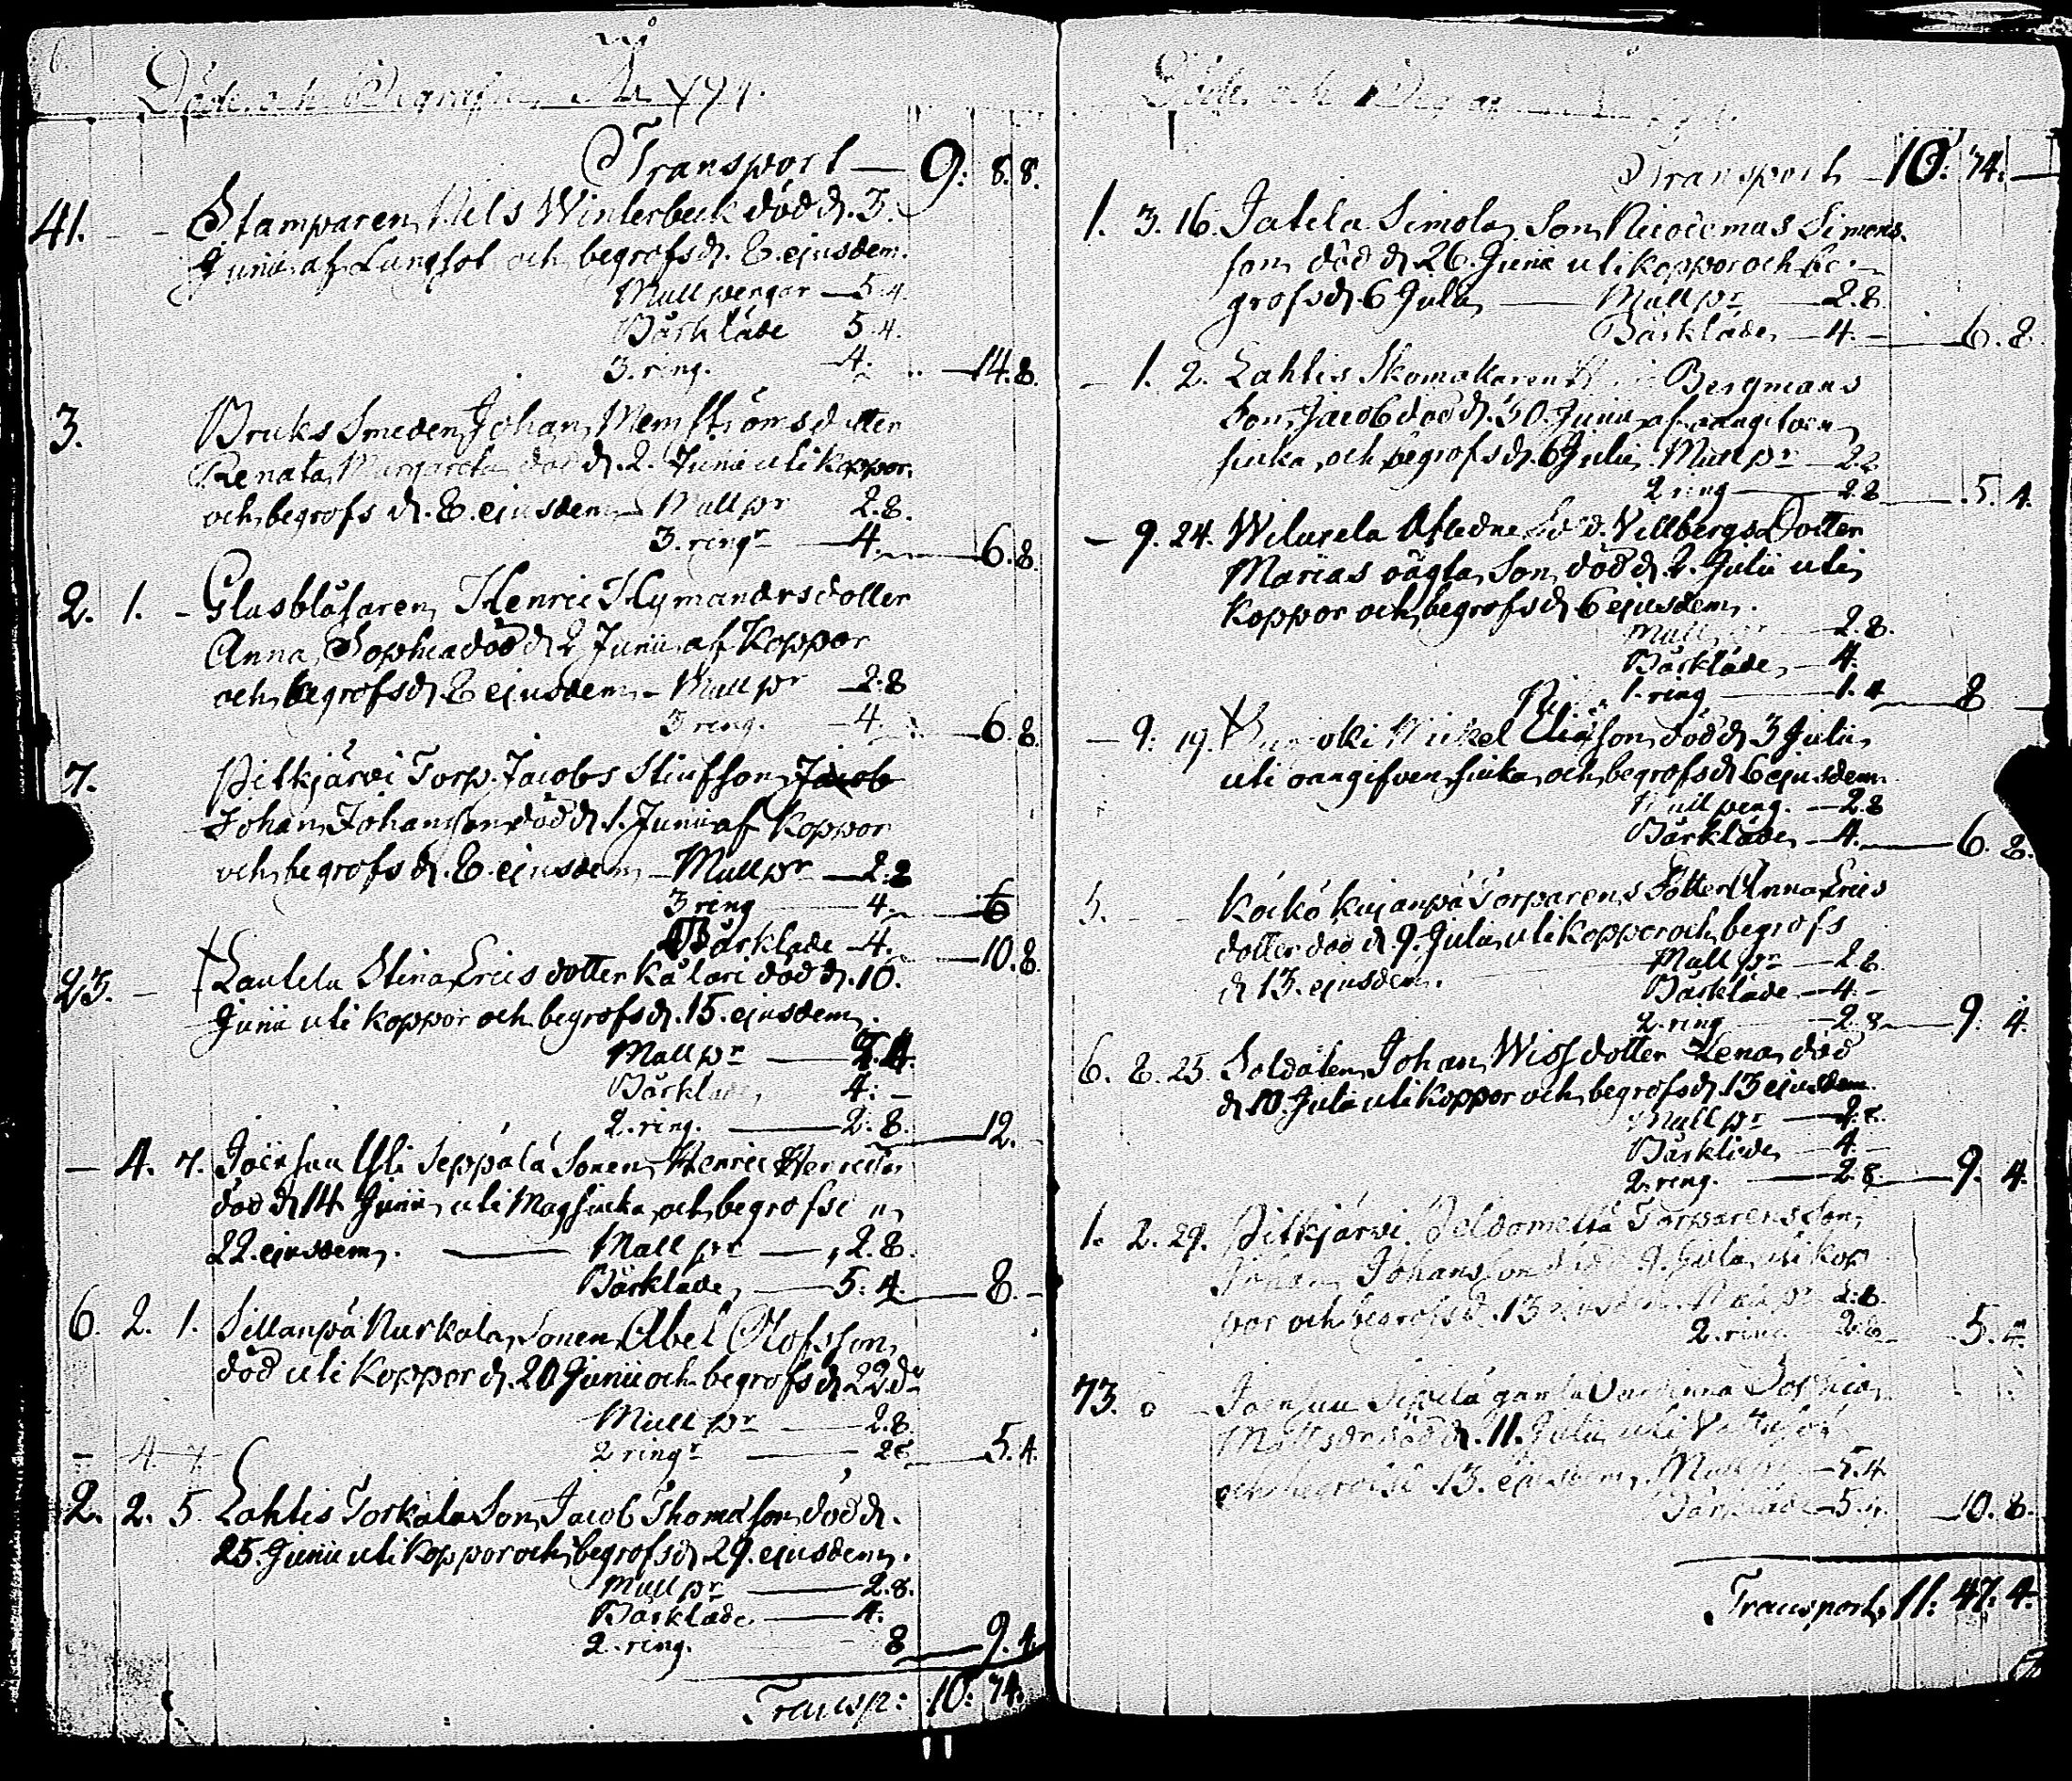 Döde och Begrafne År 1794.
Transport — 9: 8. 8.
41. - - Stamparen Nils Winterbeck död d. 3.
Junii af Lungsot och begrofs d. 8. ejusdem.
Mull pengar — 5. 4.
Bårkläde 5. 4.
3. ring. — 4. — 14. 8.
3. Bruks Smeden Johan Memströms dotter
Renata Margareta död d. 2. Junii uti koppor.
och begrofs d. 8. ejusdem — Mull pr 2. 8.
3. ringr — 4. — 6. 8.
2. 1. - Glasblåsaren Henric Hymanders dotter
Anna Sophia död d. 2 Junii af Koppor
och begrofs d. 8 ejusdem — Mull pr 2. 8
3 ring. — 4. — 6. 8.
7. Pitkjärvi Torp. Jacobs Stiufson Jacob
Johan Johansson död d. 1. Junii af Koppor
och begrofs d. 8. ejusdem — Mull pr — 2. 8
3 ring — 4. — 6
Bårkläde — 4. — 10. 8.
23. - Lautela Stina Erics dotter Kålari död d. 10.
Junii uti koppor och begrofs d. 15. ejusdem.
Mull pr — 5. 4.
Bårkläde 4. —
2. ring. — 2. 8. — 12. -
- 4. 7. Joensuu Yli Seppälä Sonen Henric Henricss.
död d. 14. Junii uti Magsiuka och begrofs d.
22. ejusdem. — Mull pr — 2. 8.
Bårkläde — 5. 4. — 8. -
6. 2. 1. Sillanpä Nurkala Sonen Abel Olofsson
död uti Koppor d. 20 Junii och begrofs d. 22 do
Mull pr — 2. 8.
2 ringr — 2 8. — 5. 4.
- 4. 7.
2. 2. 5. Lahtis Torkala Son Jacob Thomasson död d.
25. Junii uti Koppor och begrofs d. 29. ejusdem.
Mull pr — 2. 8.
Bårkläde — 4.
2. ring. 8 — 9. 4
Transp: 10: 74.
Döde och Begrafne
Transport — 10: 74: —
1. 3. 16. Jatila Simola Son Nicodemus Simons
son död d. 26. Junii uti koppor och be-
grofs d. 6 Julii — Mull pr — 2. 8.
Bårkläde — 4. — 6. 8.
- 1. 2. Lahtis Skomakaren Bergmans
Son Jacob död d. 30. Junii af oangifven
siuka, och begrofs d. 6 Julii. Mull pr — 2. 8
2 ring — 2. 8 — 5. 4.
- 9. 24. Wiluxela Afledne Sold. Villbergs Dotter
Marias oägta Son död d. 2. Julii uti
Koppor och begrofs d. 6 ejusdem.
Mull pr — 2. 8.
Bårkläde — 4.
1. ring — 1. 4 — 8 —
- 9. 19. Mickel Eliasson död d. 3 Julii
uti oangifven siuka och begrofs d. 6 ejusdem
Mull peng. — 2. 8
Bårkläde — 4. — 6. 8.
5. - - Köckö Kujanpä Torparens Dotter Anna Erics
dotter död d. 9. Julii uti Koppor och begrofs
d. 13. ejusdem. — Mull pr — 2. 8.
Bårkläde — 4. -
2. ring — 2. 8 — 9. 4.
6. 8. 25. Soldaten Johan Wiss dotter Lena död
d. 10. Julii uti Koppor och begrofs d. 13 ejusdem.
Mull pr — 2. 8.
Bårkläde — 4. -
2. ring. — 2. 8. — 9. 4.
1. 2. 29. Pitkjärvi Torparens Son
Johan Johansson död d. 9. Julii uti kop
por och begrofs d. 13 ejusdem. Mull pr 2. 8.
2. ring 2. 8 — 5. 4.
73. 6 - Joensuu Sipilä gamla Värdinna Sophia
Mattsdr död d. 11. Julii uti
och begrofs d. 13. ejusdem. Mull pr — 5. 4
Bårkläde — 5. 4. — 10. 8.
Transport, 11: 47. 4.